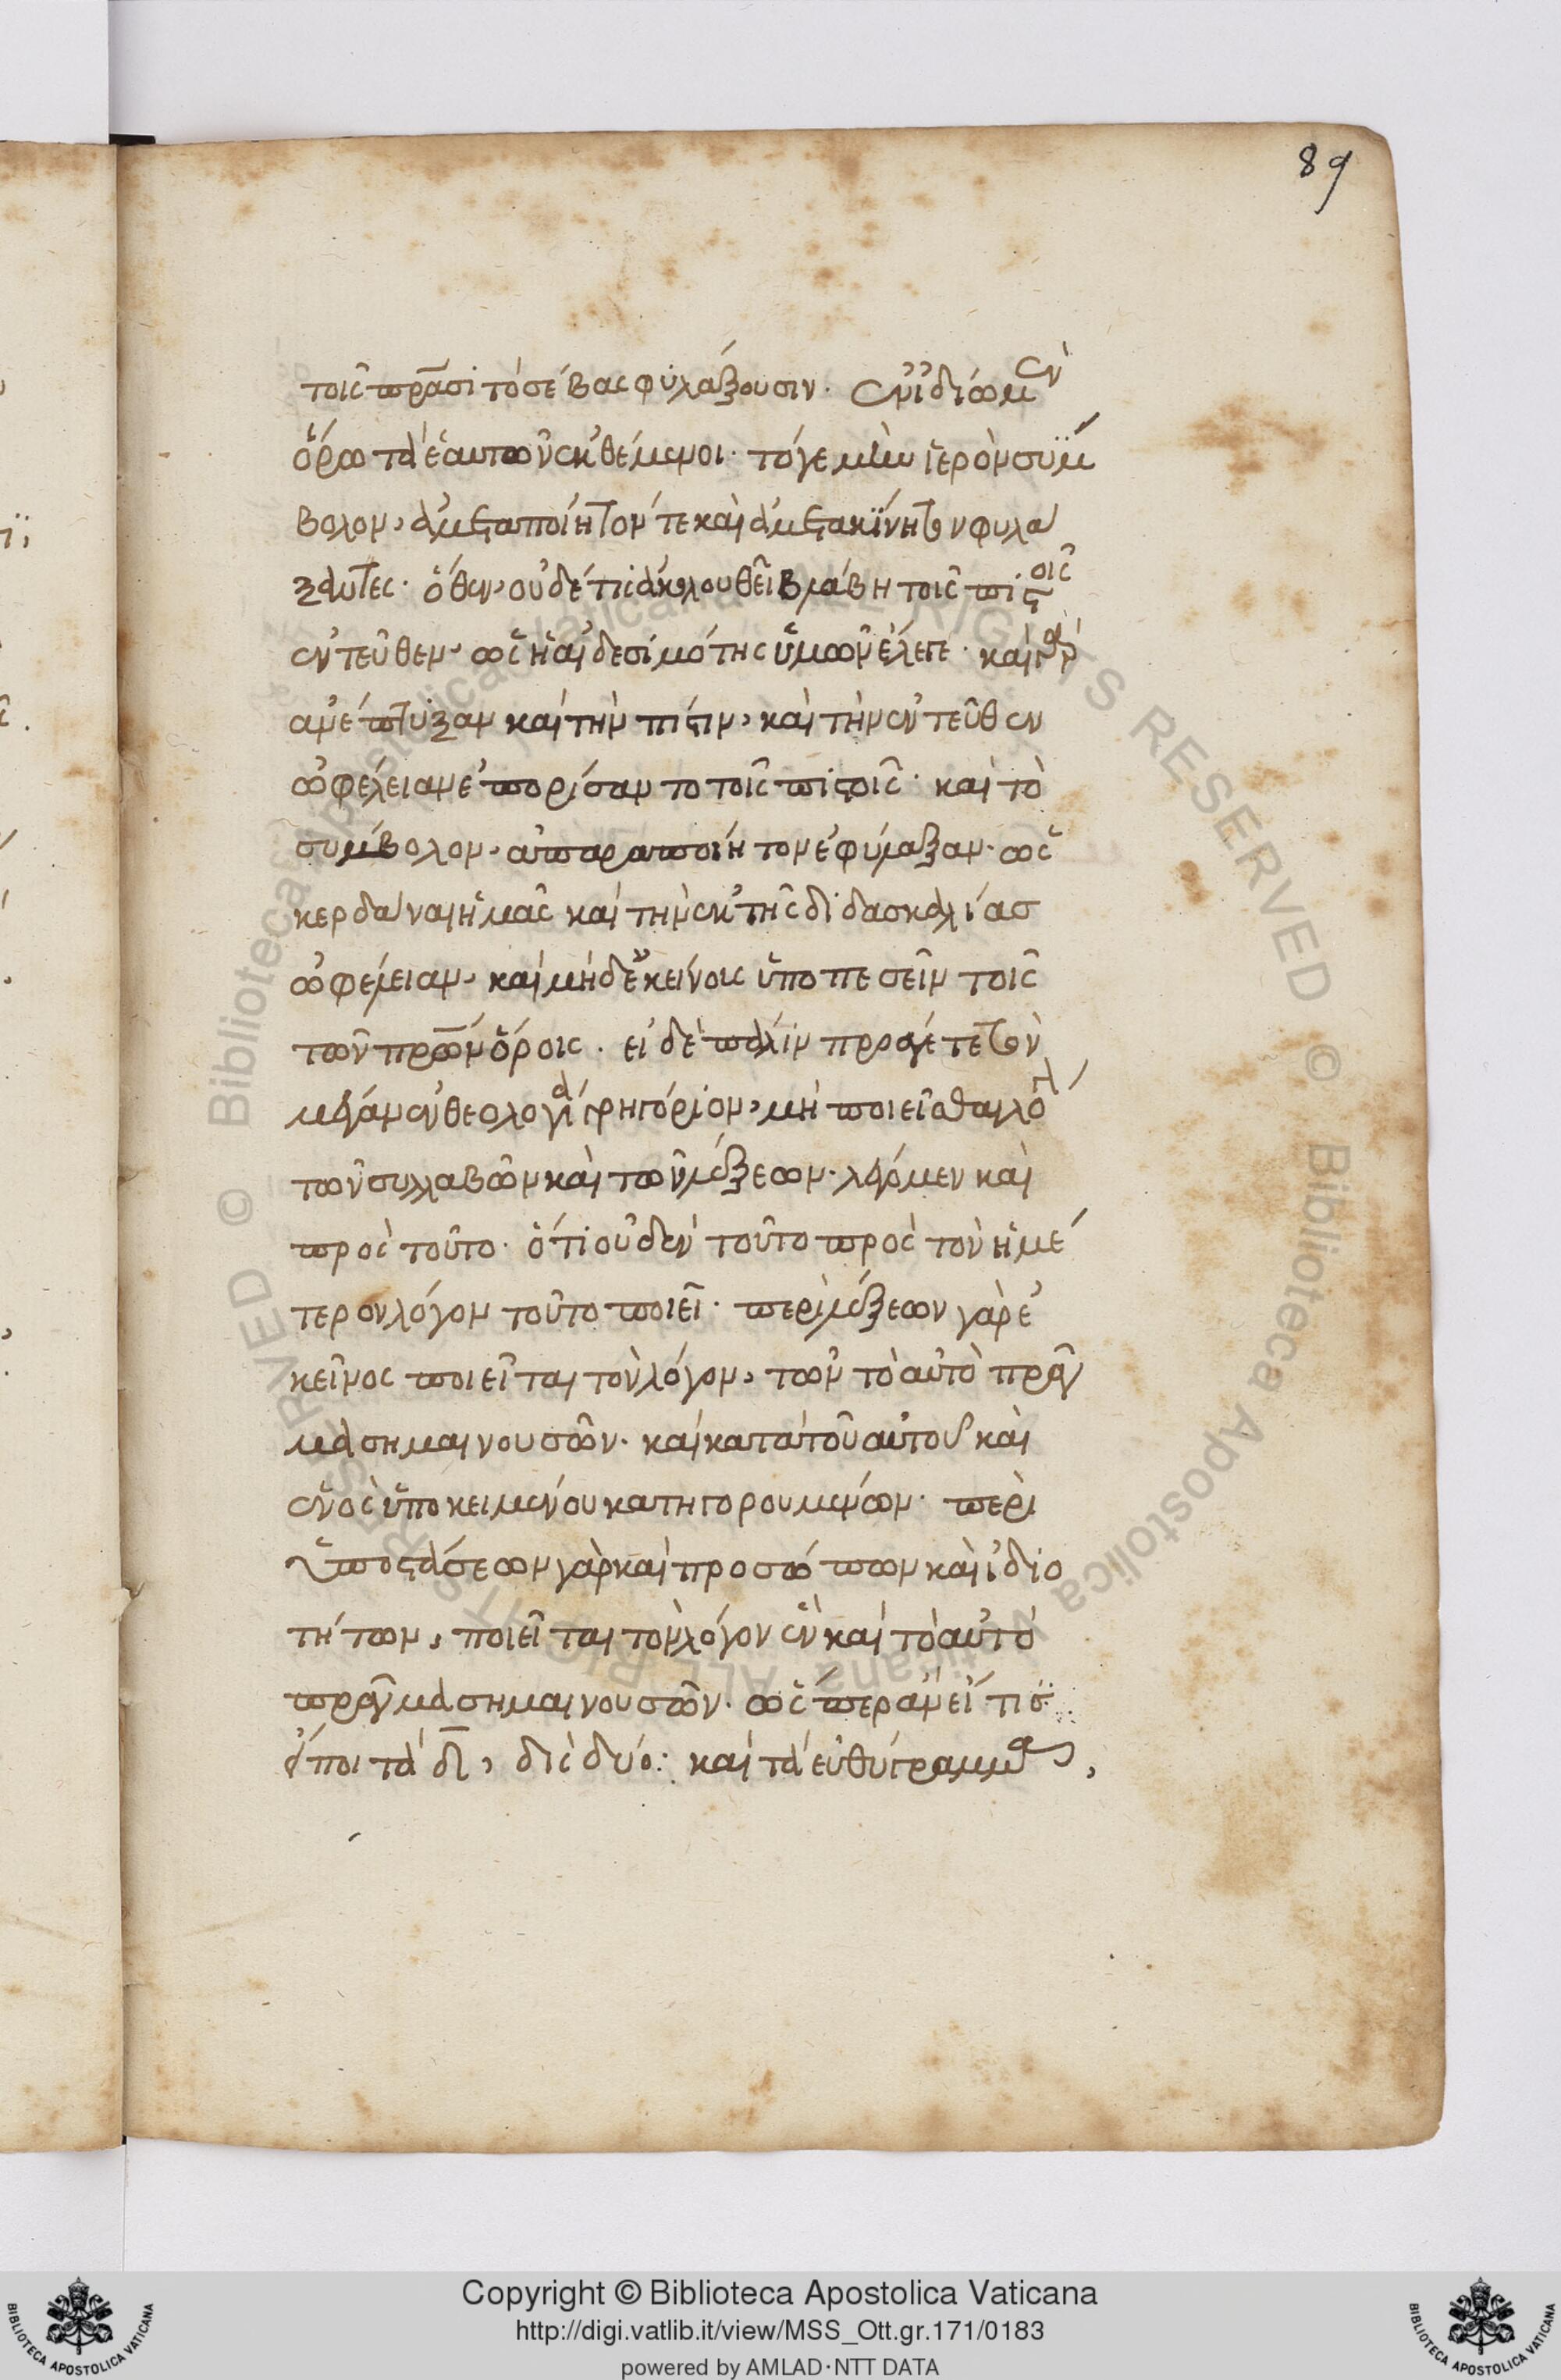 89
τοῖς πρᾶσι τὸ σέβας φυλάξουσιν. ἐν ἰδίω μὲν
ὅρω τὰ ἑαυτῶν ἐκθέμενοι. τό γε μὴν ἱερὸν σύμ
βολον, ἀμεταποίητόν τε καὶ ἀμετακίνητον φυλά
ξαντες. ὅθεν, οὐδέ τις ἀκολουθεῖ βλάβη τοῖς πιστοῖς
ἐντεῦθεν, ὡς ἡ αἰδεσιμότης ὑμῶν ἔλεγε. καὶ γὰρ
ἀνέπτυξαν καὶ τὴν πίστιν, καὶ τὴν ἐντεῦθεν
ὠφέλειαν ἐπορίσαντο τοῖς πιστοῖς. καὶ τὸ
σύμβολον, ἀπαραποίητον ἐφύλαξαν. ὡς
κερδαίναι ἡμᾶς καὶ τὴν ἐκ τῆς διδασκαλίας
ὠφέλειαν, καὶ μηδ' ἐκείνοις ὑποπεσεῖν τοῖς
τῶν πρῶν ὅροις. εἰ δὲ πάλιν προάγετε τὸν
μέγαν ἐν θεολογία γρηγόριον, μὴ ποιεῖσθαι λόγον
τῶν συλλαβῶν καὶ τῶν λέξεων. λέγομεν καὶ
πρὸς τοῦτο. ὅτι οὐδὲν τοῦτο πρὸς τὸν ἡμέ
τερον λόγον τοῦτο ποιεῖ. περὶ λέξεων γὰρ ἐ
κεῖνος ποιεῖται τὸν λόγον, τῶν τὸ αὐτὸ πρᾶγ
μα σημαινουσῶν. καὶ κατὰ τοῦ αὐτοῦ καὶ
ἑνὸς ὑποκειμένου κατηγορουμένων. περὶ
ὑποστάσεων γὰρ καὶ προσώπων καὶ ἰδιο
τήτων, ποιεῖται τὸν λόγον ἓν καὶ τὸ αὐτὸ
πρᾶγμα σημαινουσῶν. ὥσπερ ἂν εἴ τις
εἴποι τὰ δ̅, δὶς δύο: καὶ τὰ εὐθύγραμμα,
Copyright © Biblioteca Apostolica Vaticana
http://digi.vatlib.it/view/MSS_Ott.gr.171/0183
powered by AMLAD·NTT DATA